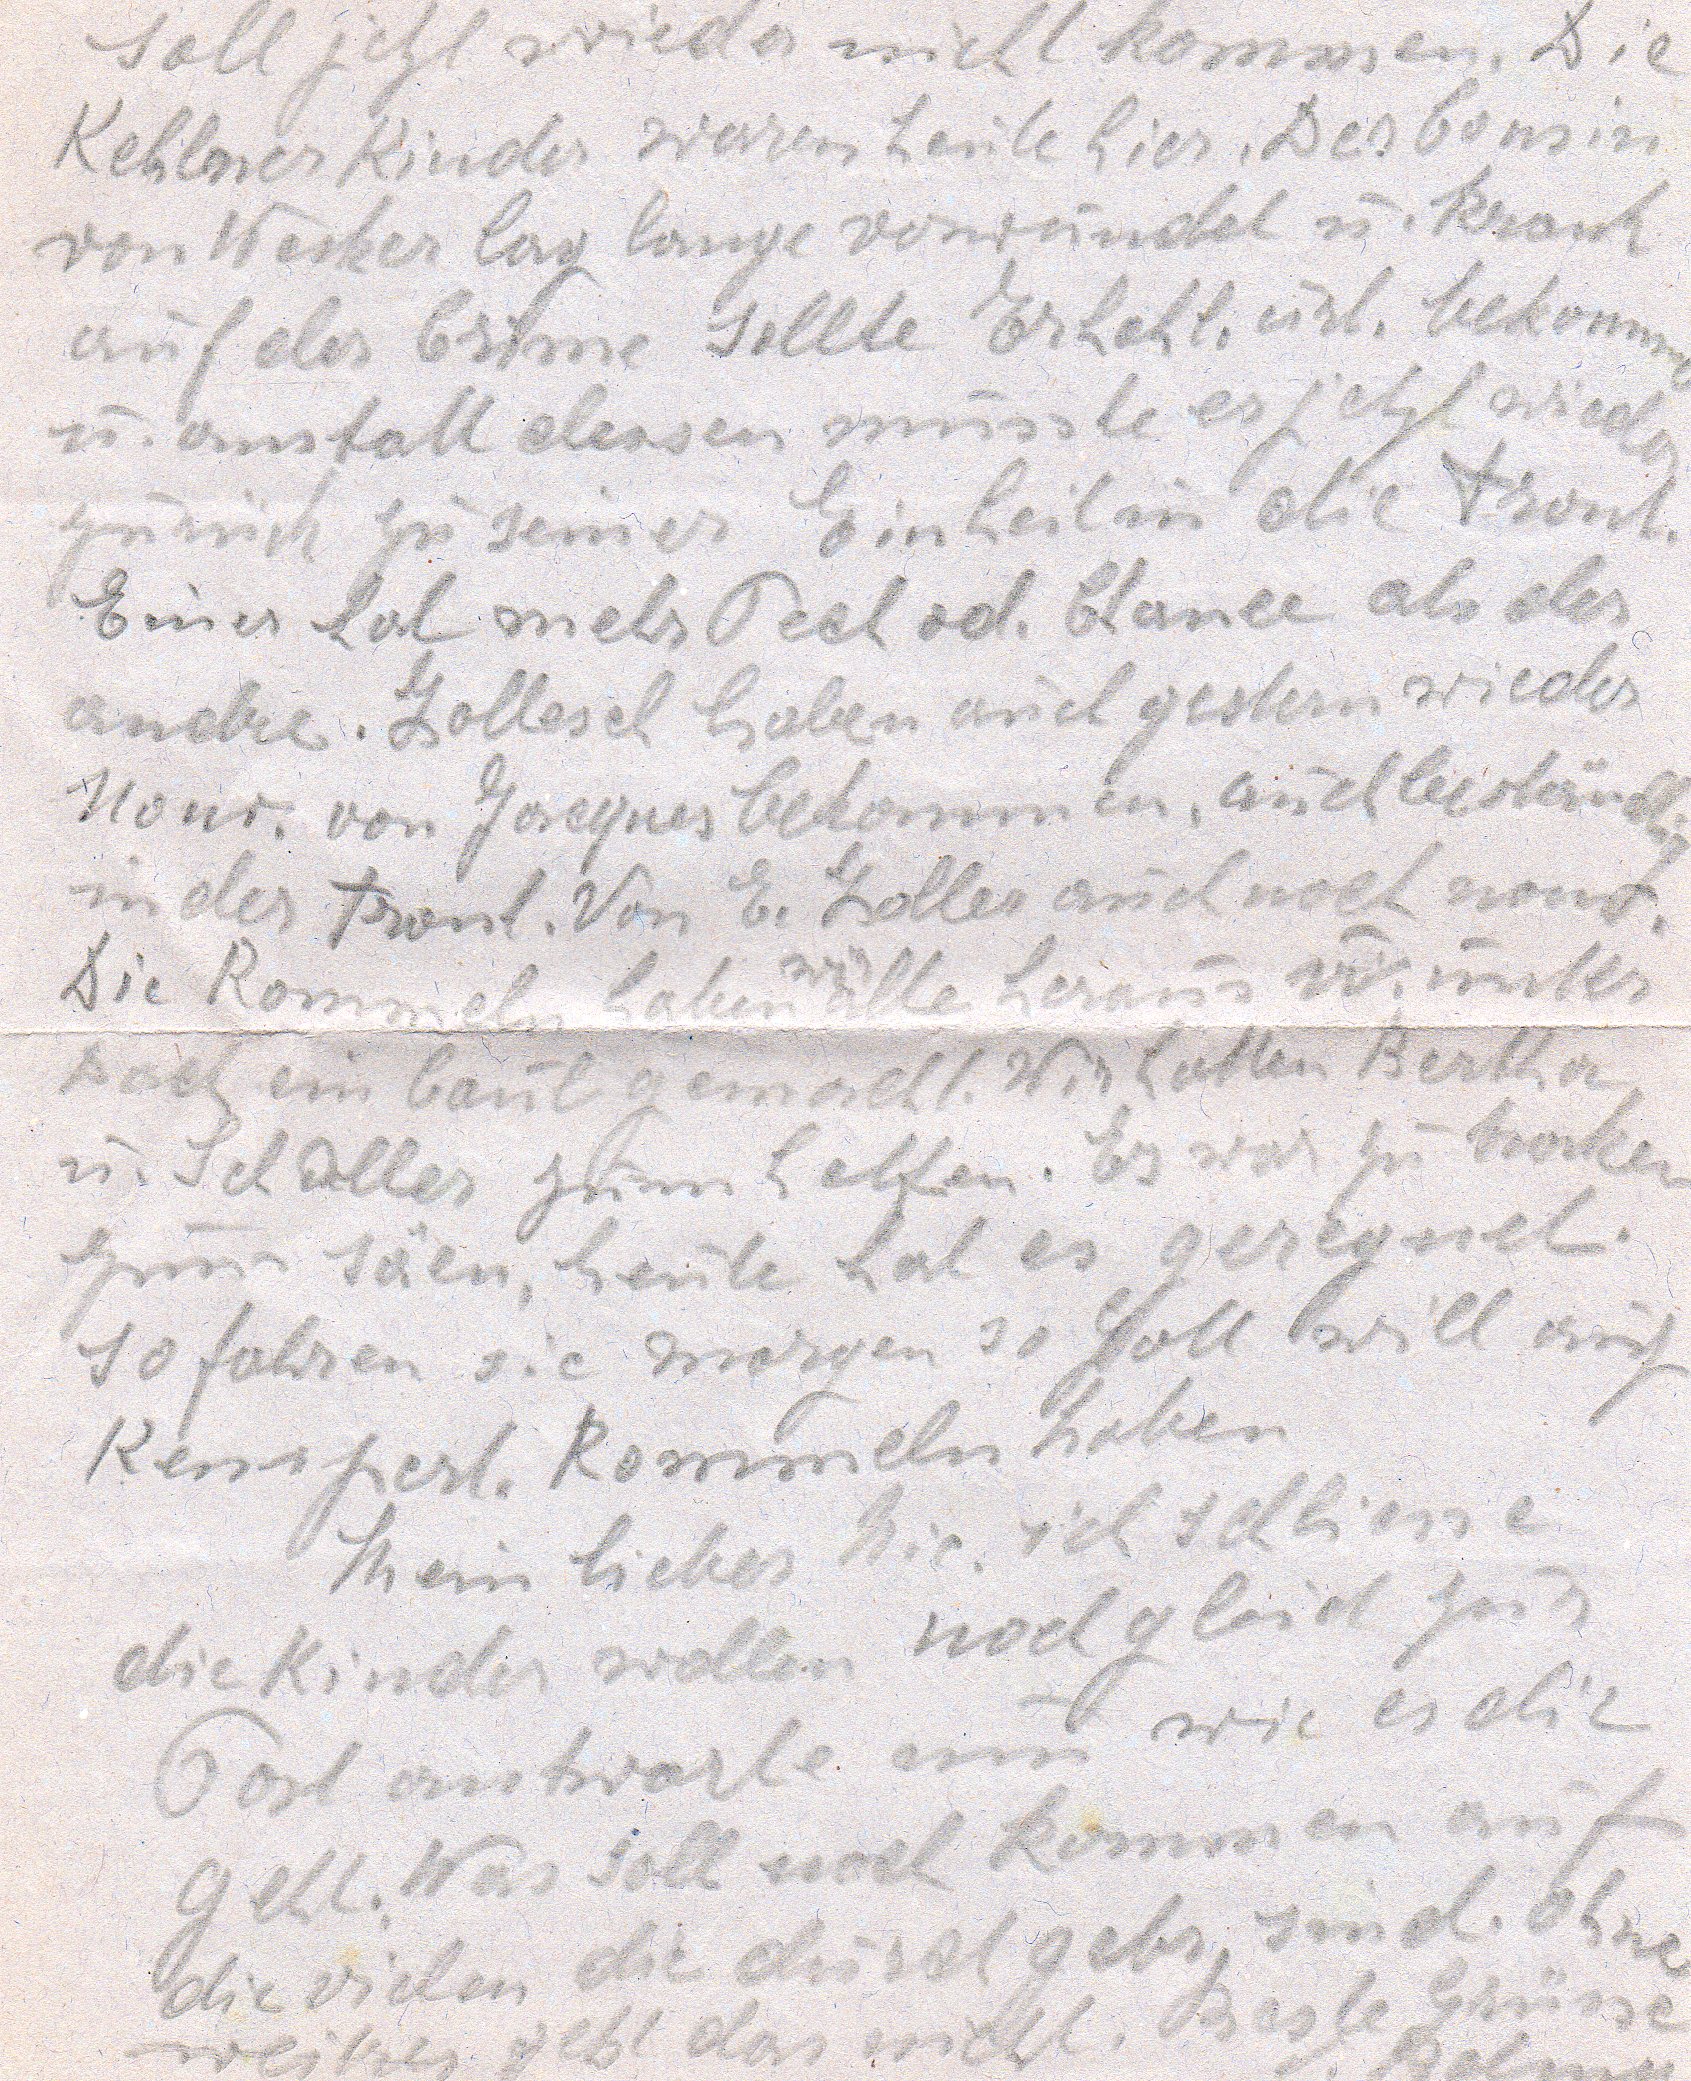 soll jetzt wieder nicht kommen. Die
Kehlner Kinder waren heute hier. Der Cousin
von Wesker lag lange verwundet u. krank
auf der Crime sollte Erhohl. url. bekommen
u. anstatt dessen musste er jetzt wieder
zurück zu seiner Einheit in die Front.
Einer hat mehr Pech od. Chance als der
andre. Gollesch haben auch gestern wieder
Nour. von Jacques bekommen, auch beständig
in der Front. Von E. Goller auch noch nour.
Die Rommeln haben wir alle heraus u. unter
Dach ein baut gemacht. Wir hatten Bertha
u. Schaller zum helfen. Es war zu trocken
zum säen, heute hat es geregnet.
so fahren sie morgen so Gott will auf
Rommeln haben
Mein lieber ich schliesse
die Kinder wollen noch gleich zur
Post antworte mir wie es dir
geht. Was soll noch kommen auf
die vielen die durch gebr. sind. Ohne
weitres geht das nicht. Beste Grüsse